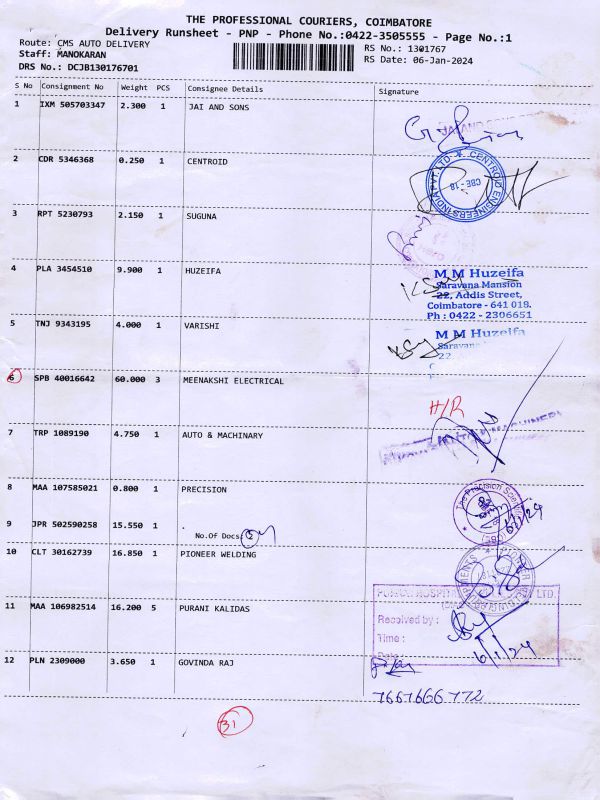 THE PROFESSIONAL COURIERS, COIMBATORE
Delivery Runsheet - PNP - Phone No.:0422-3505555 - Page No.:1
Route: CMS AUTO DELIVERY RS No.: 1301767
Staff: MANOKARAN RS Date: 06-Jan-2024
DRS No.: DCJB130176701
S No Consignment No Weight PCS Consignee Details Signature
1 IXM 505703347 2.300 1 JAI AND SONS
2 CDR 5346368 0.250 1 CENTROID
CENTROID ENGINEERS INDIA PVT. LTD CBE - 18
3 RPT 5230793 2.150 1 SUGUNA
4 PLA 3454510 9.900 1 HUZEIFA
M M Huzeifa
Saravana Mansion
22, Addis Street,
Coimbatore - 641 018.
Ph : 0422 - 2306651
5 TNJ 9343195 4.000 1 VARISHI
M M Huzeifa
22
6 SPB 40016642 60.000 3 MEENAKSHI ELECTRICAL
H/R
7 TRP 1089190 4.750 1 AUTO & MACHINARY
8 MAA 107585021 0.800 1 PRECISION
The Precision
9 JPR 502590258 15.550 1
No.Of Docs:
10 CLT 30162739 16.850 1 PIONEER WELDING
11 MAA 106982514 16.200 5 PURANI KALIDAS
LTD.
Received by :
Time :
6/1/24
12 PLN 2309000 3.650 1 GOVINDA RAJ
7667666772
31